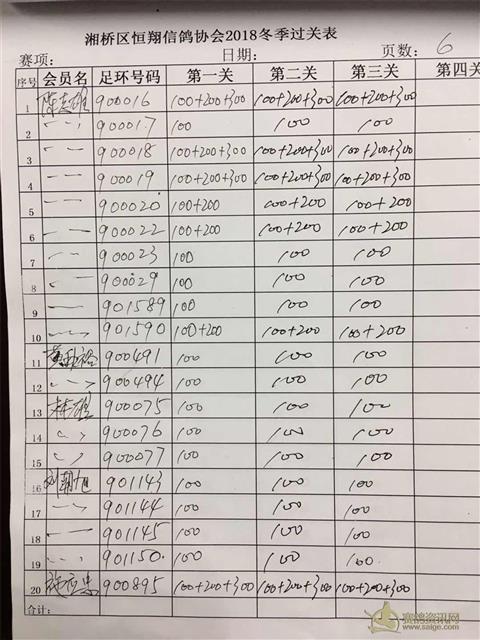 湘桥区恒翔信鸽协会2018冬季过关表
赛项: 日期: 页数: 6
序号 会员名 足环号码 第一关 第二关 第三关 第四关
1 900016 100+200+300 100+200+300 100+200+300
2 900017 100 100 100
3 900018 100+200+300 100+200+300 100+200+300
4 900019 100+200+300 100+200+300 100+200+300
5 900020 100+200 100+200 100+200
6 900022 100+200 100+200 100+200
7 900023 100 100 100
8 900029 100 100 100
9 901589 100 100 100
10 901590 100+200 100+200 100+200
11 900491 100 100 100
12 900494 100 100 100
13 900075 100 100 100
14 900076 100 100 100
15 900077 100 100 100
16 901143 100 100 100
17 901144 100 100 100
18 901145 100 100 100
19 901150 100 100 100
20 900895 100+200+300 100+200+300 100+200+300
合计:
赛鸽资讯网
www.saige.com